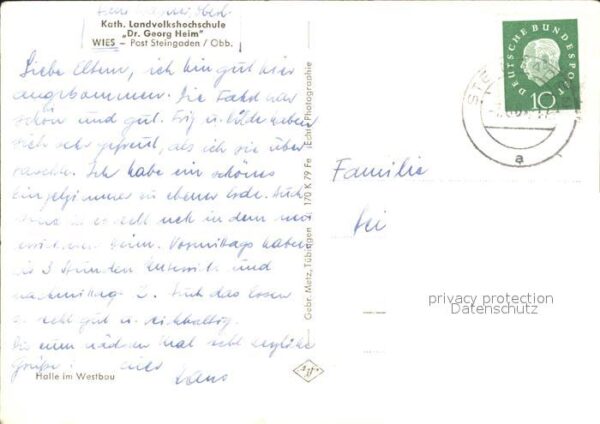 Kath. Landvolkshochschule
„Dr. Georg Heim"
WIES – Post Steingaden / Obb.
Liebe Eltern, ich bin gut hier
angekommen. Die Fahrt war
schön und gut. Fri u. Hilde haben
sich sehr gefreut, als ich sie über
raschte. Ich habe ein schönes
Einzelzimmer zu ebener Erde. Auch
es in dem
Heim. Vormittags haben
wir 3 Stunden Unterricht und
nachmittag 2. Auch das Essen
ist sehr gut u. reichhaltig.
Bis zum nächsten Mal sehr herzliche
Grüße
Euer
Hans
Halle im Westbau
Gebr. Metz, Tübingen 170 K 79 Fe (Echte Photographie)
DEUTSCHE BUNDESPOST
10
STE
a
Familie
bei
privacy protection
Datenschutz